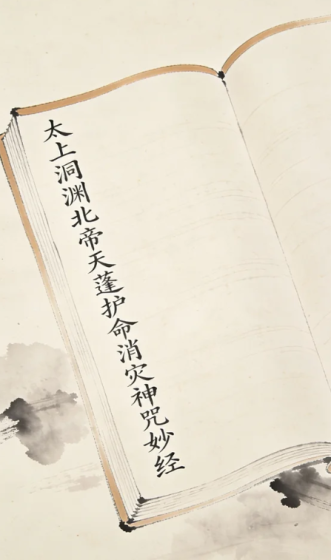 太上洞渊北帝天蓬护命消灾神咒妙经